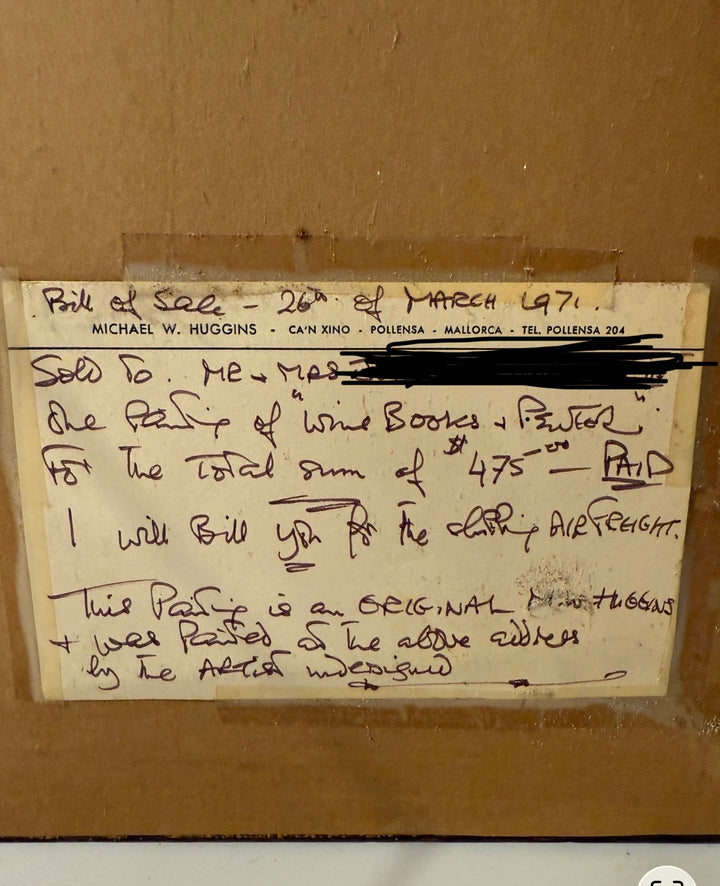 Bill of Sale - 26th of MARCH 1971.
MICHAEL W. HUGGINS - CA'N XINO - POLLENSA - MALLORCA - TEL. POLLENSA 204
Sold To. MR + MRS
One Painting of "Wine Books + PEWTER"
For The Total sum of $475-00 — PAID
I will Bill you for the shipping AIRFREIGHT.
This Painting is an ORIGINAL M.W HUGGINS
+ was Painted at the above address
by the ARTIST undersigned